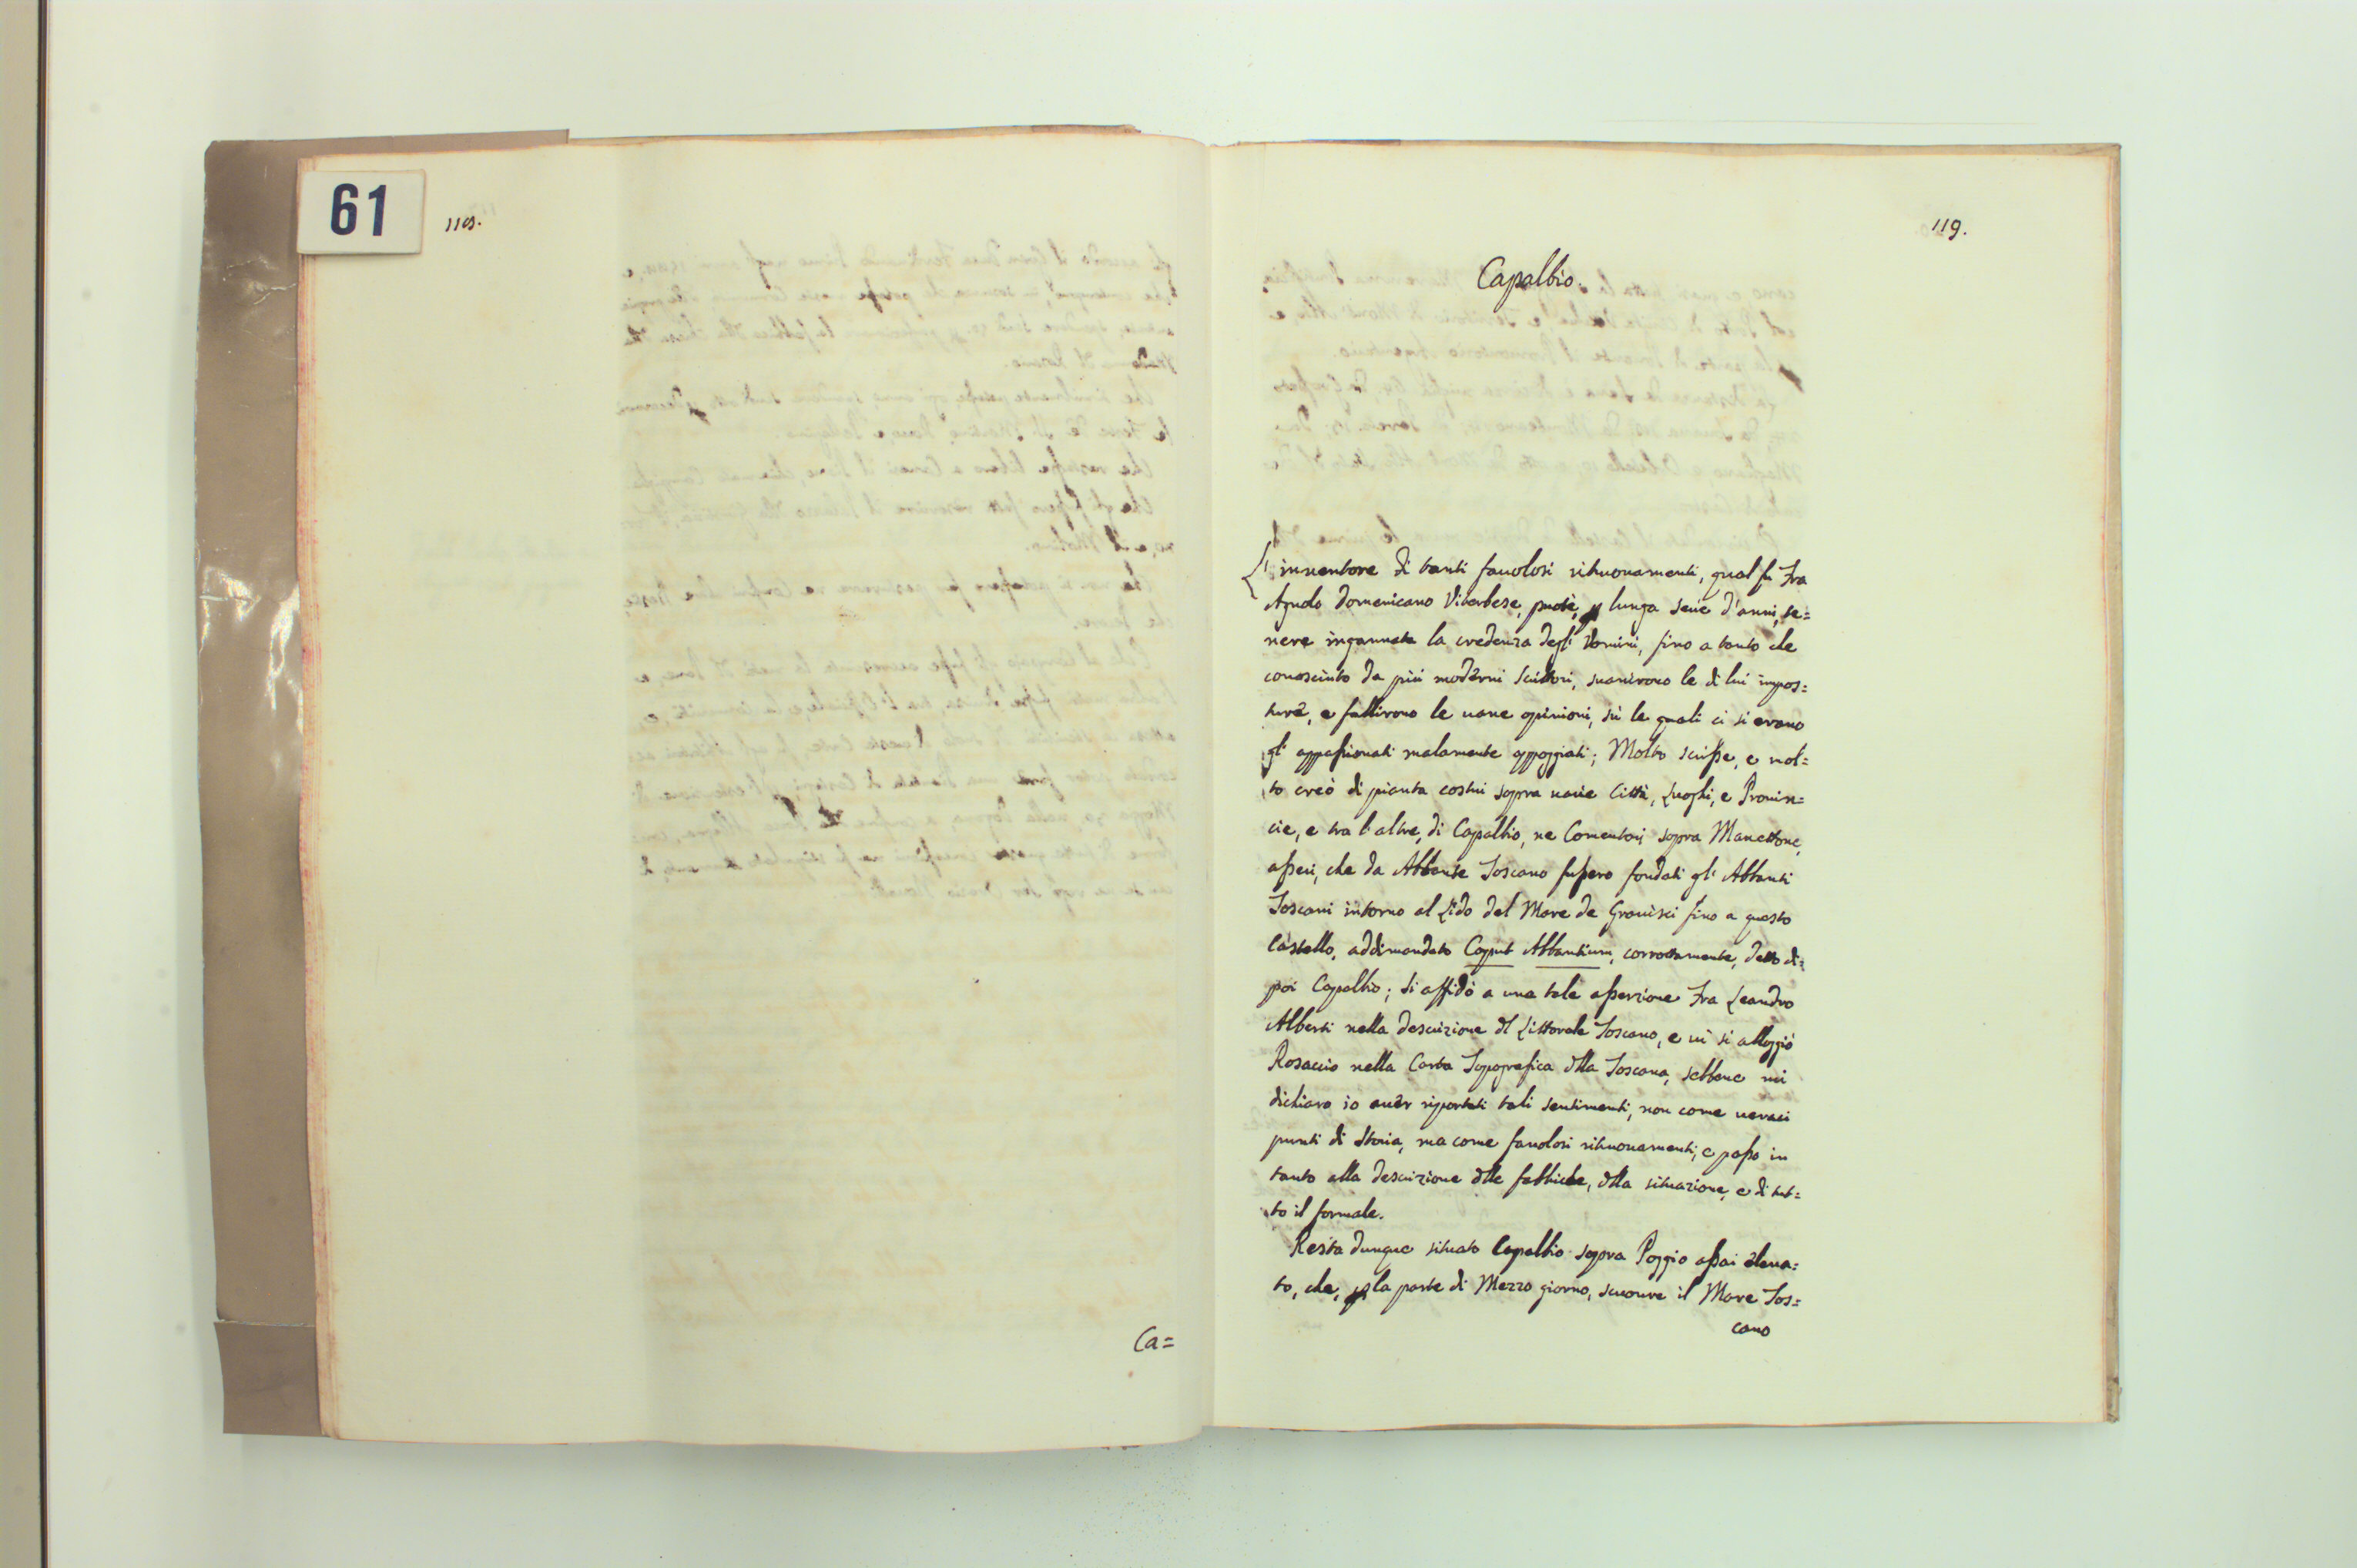 61
118.
Ca=
119.
Capalbio.
L'inuentore di tanti fauolosi ritrouamenti, qual fu Fra
Agnolo Domenicano Viterbese, puotè, p lunga serie d'anni, te=
nere ingannata la credenza degl' Uomini, fino a tanto che
conosciuto da più moderni Scrittori, suanirono le di lui impos=
ture, e fallirono le uane opinioni, sù le quali ci si erano
gl' appassionati malamente appoggiati; Molto scrisse, e mol=
to creò di pianta costui sopra uarie Città, Luoghi, e Prouin=
cie, e tra l'altre, di Capalbio, ne Comentarj sopra Manettone,
asserì, che da Abbante Toscano fussero fondati gl' Abbanti
Toscani intorno al Lido del Mare da Grauisci fino a questo
Castello, addimandato Caput Abbantium, corrottamente, detto di=
poi Capalbio; Si affidò a una tale asserzione Fra Leandro
Alberti nella descrizione dl Littorale Toscano, e ui si alloggiò
Rosaccio nella Carta Topografica dlla Toscana, sebbene mi
dichiaro io auer riportati tali sentimenti, non come ueraci
punti di Storia, ma come fauolosi ritrouamenti, e passo in
tanto alla descrizione dlle fabbriche, dlla situazione, e di tut=
to il formale.
Resta dunque situato Capalbio sopra Poggio assai eleua=
to, che, p la parte di Mezzo giorno, scuopre il Mare Tos=
cano